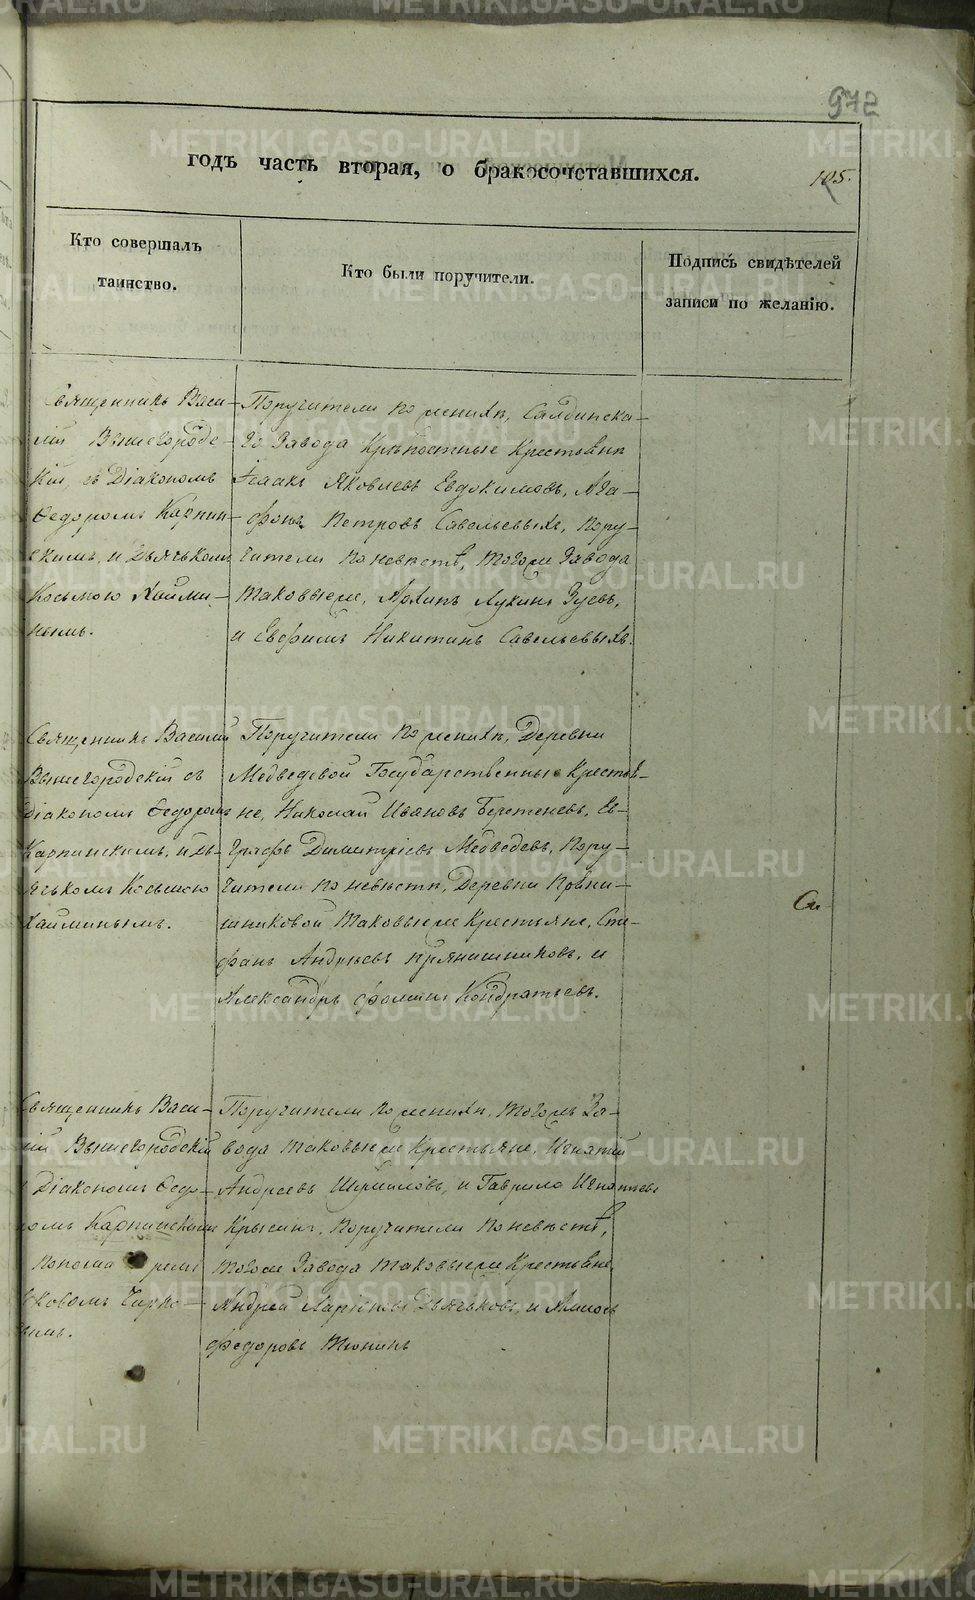 972
годъ часть вторая, о бракосочетавшихся.
105.
Кто совершалъ
таинство.
Кто были поручители.
Подпись свидѣтелей
записи по желанію.
Священникъ Васи-
лій Вышегородс-
кій, съ Діакономъ
Ѳедоромъ Карпин-
скимъ, и Дьячькомъ
Косьмою Хайми-
нымъ.
Поручители по женихѣ, Салдинска-
го Завода Крѣпостные Крестьяне
Исаакъ Яковлевъ Евдокимовъ, Ага-
фонъ Петровъ Савельевыхъ, Пору-
чители по невѣстѣ, тогоже Завода
таковыеже, Архипъ Лукинъ Зуевъ,
и Евфимъ Никитинъ Савельевыхъ.
Священникъ Василій
Вышегородскій съ
Діакономъ Ѳедоромъ
Карпинскимъ, и Дь-
ячькомъ Косьмою
Хайминымъ.
Поручители по женихѣ, Деревни
Медведевой Государственные Крестья-
не, Николай Ивановъ Берстеневъ, Ев-
графъ Димитріевъ Медведевъ, Пору-
чители по невѣстѣ, Деревни Пряни-
шниковой таковыеже Крестьяне, Сте-
фанъ Андрѣевъ Прянишниковъ, и
Александръ Фоминъ Кондратьевъ.
Священникъ Васи-
лій Вышегородскій
Діакономъ Ѳедо-
ромъ Карпинскимъ
Поручители по женихѣ, тогожъ За-
вода таковыеже Крестьяне, Игнатій
Андреевъ Шумиловъ, и Гаврило Игнатьевъ
Крысинъ, поручители по невѣстѣ,
тогоже Завода таковыеже Крестьяне
Андрей Ларіоновъ Дьячьковъ, и Амосъ
Федоровъ Тюнинъ
METRIKI.GASO-URAL.RU